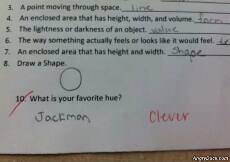 3. A point moving through space. line
4. An enclosed area that has height, width, and volume. form
5. The lightness or darkness of an object. value
6. The way something actually feels or looks like it would feel. te
7. An enclosed area that has height and width. Shape
8. Draw a Shape.
10. What is your favorite hue?
Jackman Clever
AngryDuck.com